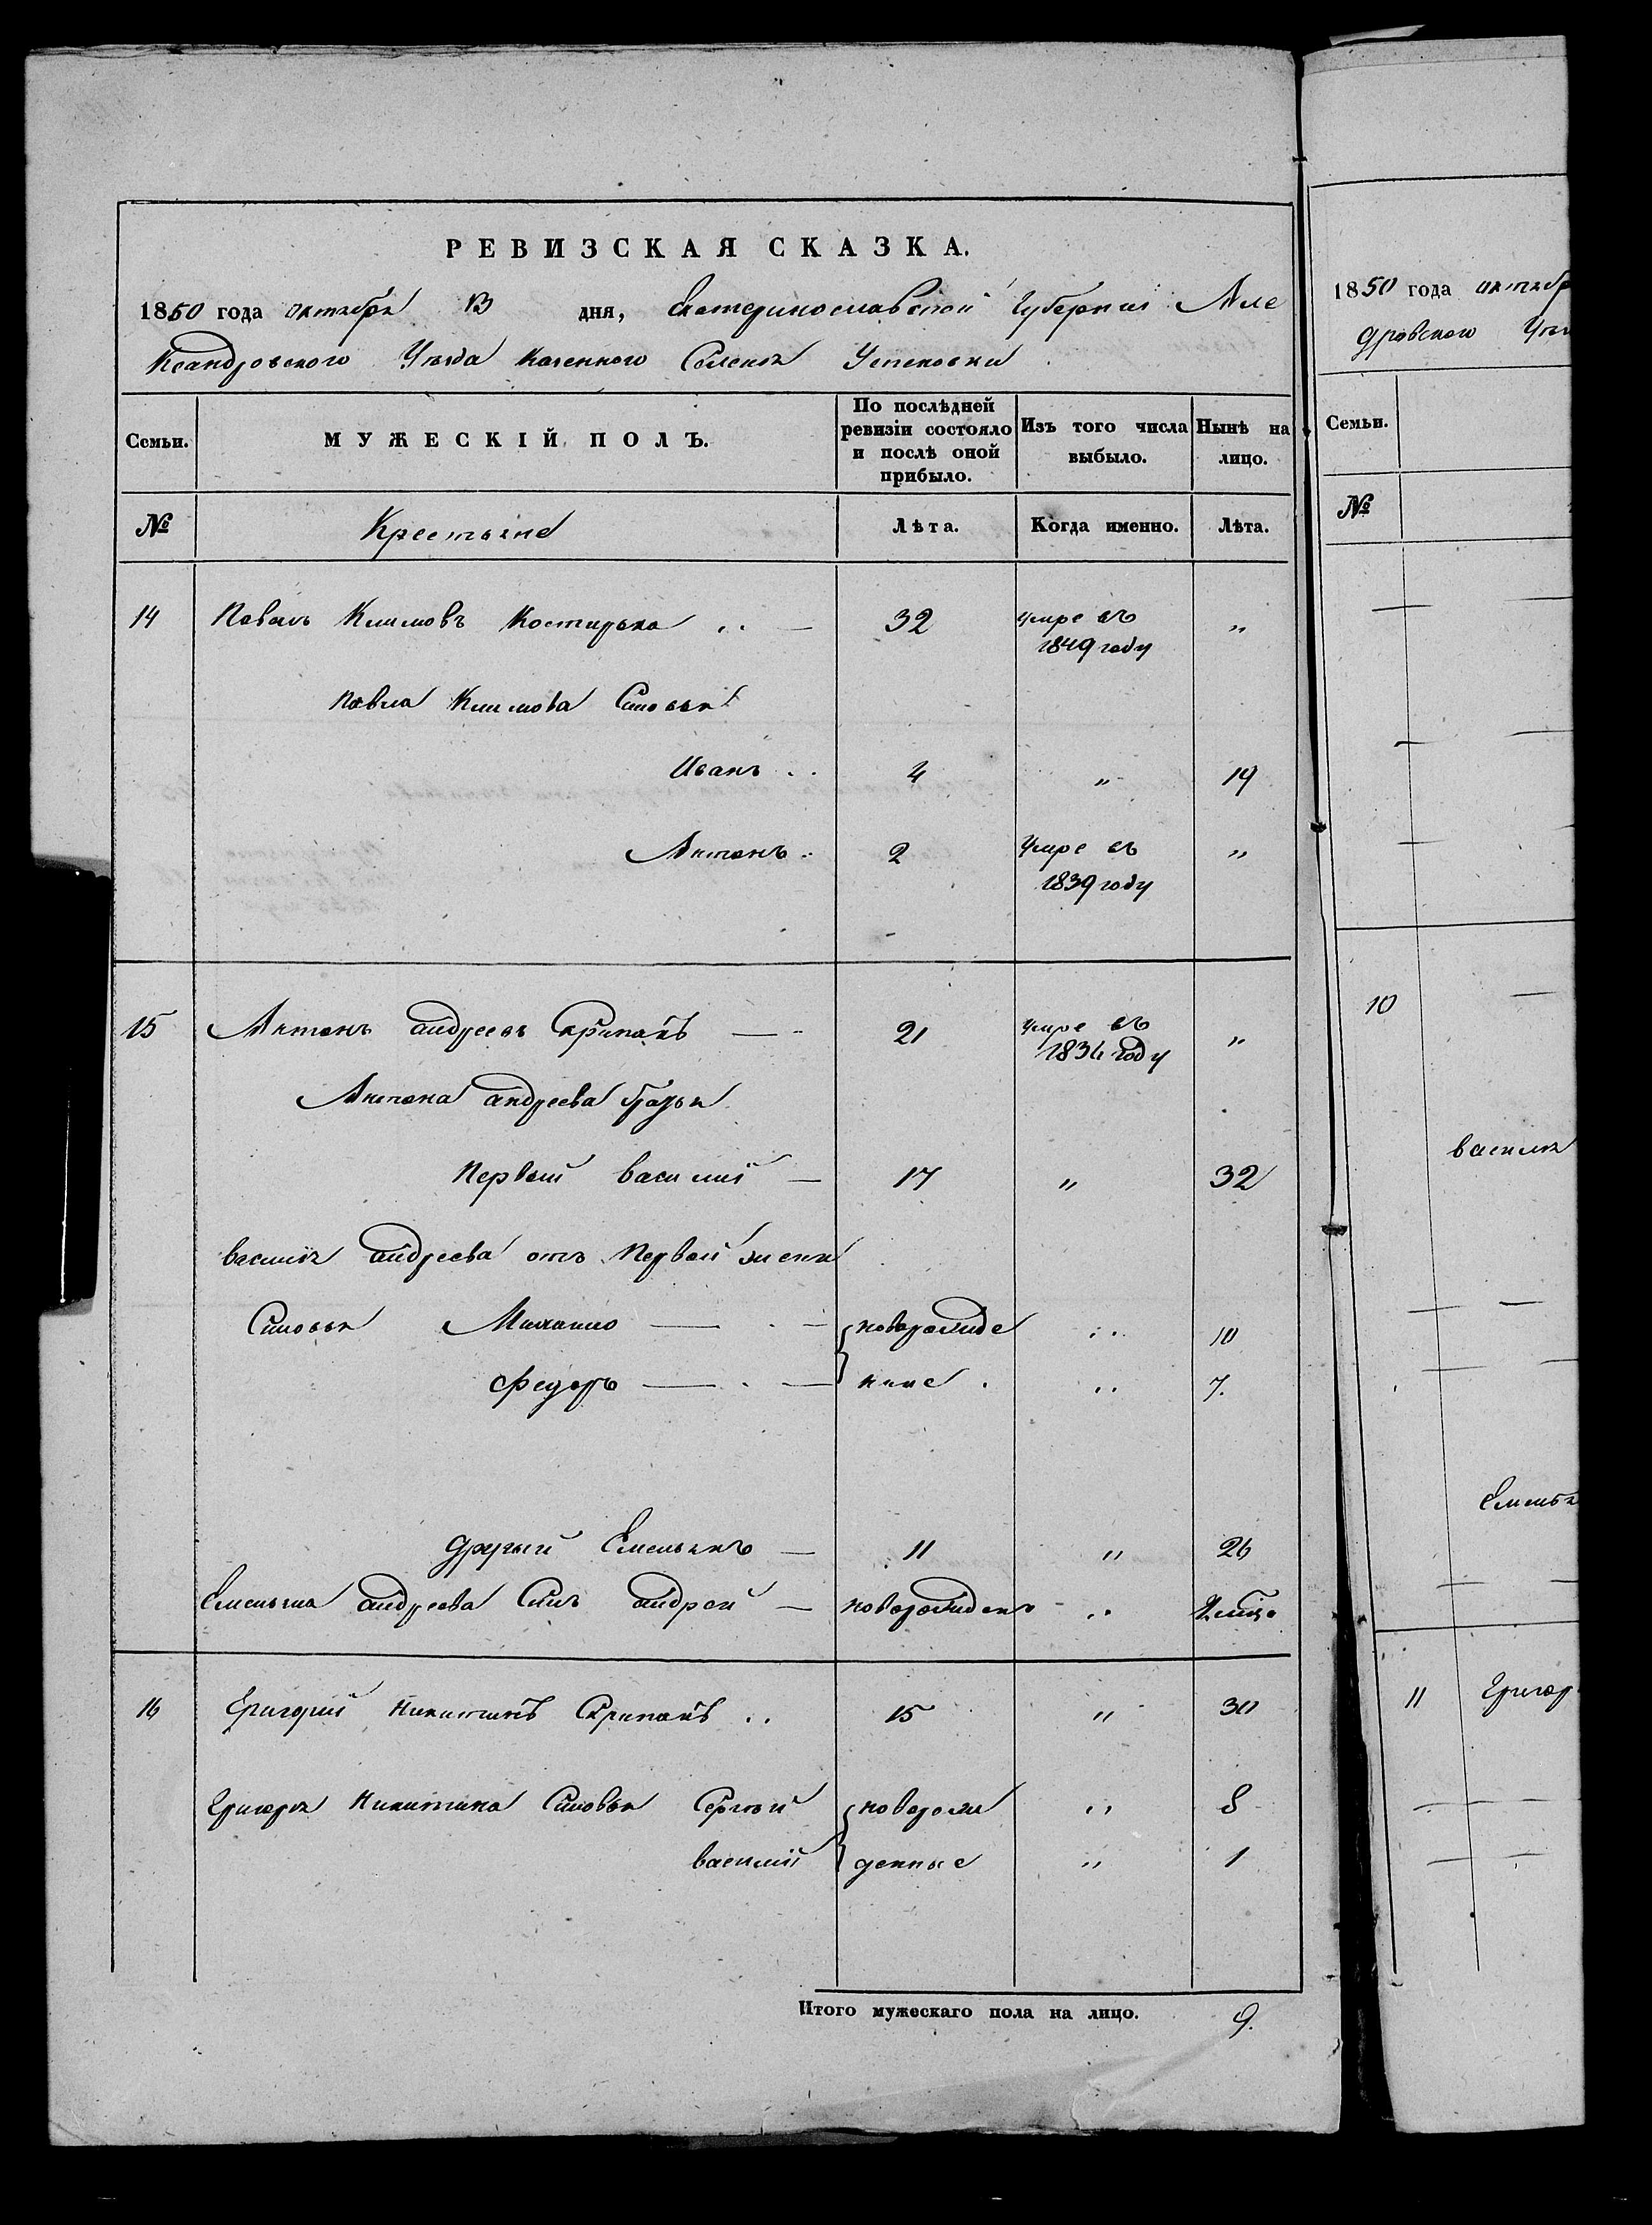 РЕВИЗСКАЯ СКАЗКА.
1850 года октября 13 дня, Екатеринославской Губернии Але
ксандровского Уезда Казенного Селения Успеновки
Семьи. МУЖЕСКІЙ ПОЛЪ. По послѣдней ревизіи состояло и послѣ оной прибыло. Изъ того числа выбыло. Нынѣ на лицо.
№ Крестьяне Лѣта. Когда именно. Лѣта.
14 Павелъ Климовъ Костирька 32 умре въ 1849 году "
Павла Климова Сыновья
Иванъ 4 " 19
Антонъ 2 Умре въ 1839 году "
15 Антонъ андреевъ Скрипакъ 21 умре въ 1834 году "
Антона андреева братья
Первый василий 17 " 32
василия андреева отъ Первой жены
Сыновья Михаило новорожде " 10
Федоръ нные " 7.
Другый Емельянъ 11 " 26
Емельяна андреева Сынъ андрей новорожденъ "
16 Григорий Никитинъ Скрипакъ 15 " 30
Григория Никитина Сыновья Сергѣй новорож " 8
василий денные " 1
Итого мужескаго пола на лицо. 9.
1850 года октябр
дровского
Семьи.
№
10
василия
Емелья
11 Григор